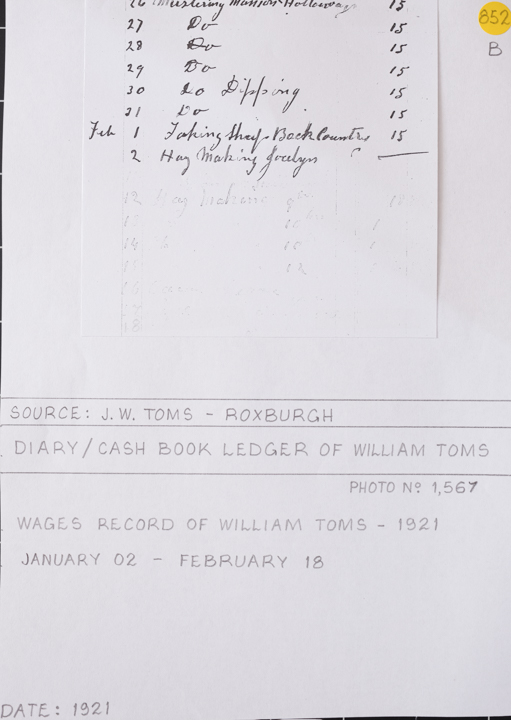 26 Mustering Manson Holloways 15
27 Do 15
28 Do 15
29 Do 15
30 Do Dipping 15
31 Do 15
Feb 1 Taking Sheep Back Country 15
2 Hay Making Jocelyn
12 Hay Making 9 hrs
10
14 10
12
852
B
SOURCE: J.W. TOMS - ROXBURGH
DIARY/CASH BOOK LEDGER OF WILLIAM TOMS
PHOTO Nº 1,567
WAGES RECORD OF WILLIAM TOMS - 1921
JANUARY 02 - FEBRUARY 18
DATE: 1921